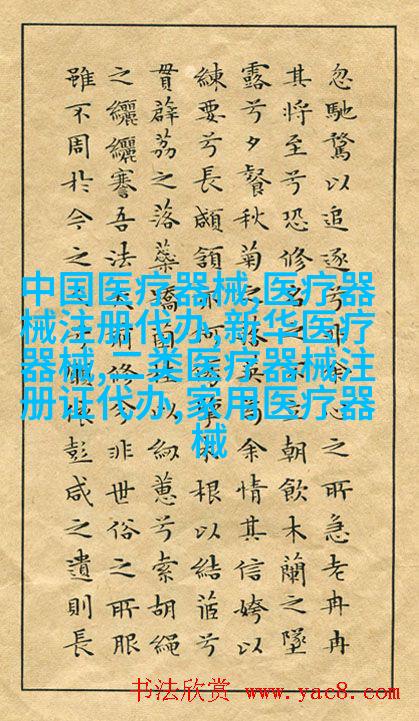 忽馳騖以追逐兮非余心之所急老冉冉
其將至兮恐修名之不立朝飲木蘭之墜
露兮夕餐秋菊之落英苟余情其信姱以
練要兮長顑頷亦何傷擥木根以結茝兮
貫薜荔之落蘂矯菌桂以紉蕙兮索胡繩
之纚纚謇吾法夫前修兮非世俗之所服
雖不周於今之人兮願依彭咸之遺則長
中国医疗器械,医疗器
械注册代办,新华医疗
器械,二类医疗器械注
册证代办,家用医疗器
械
书法欣赏 www.yac8.com